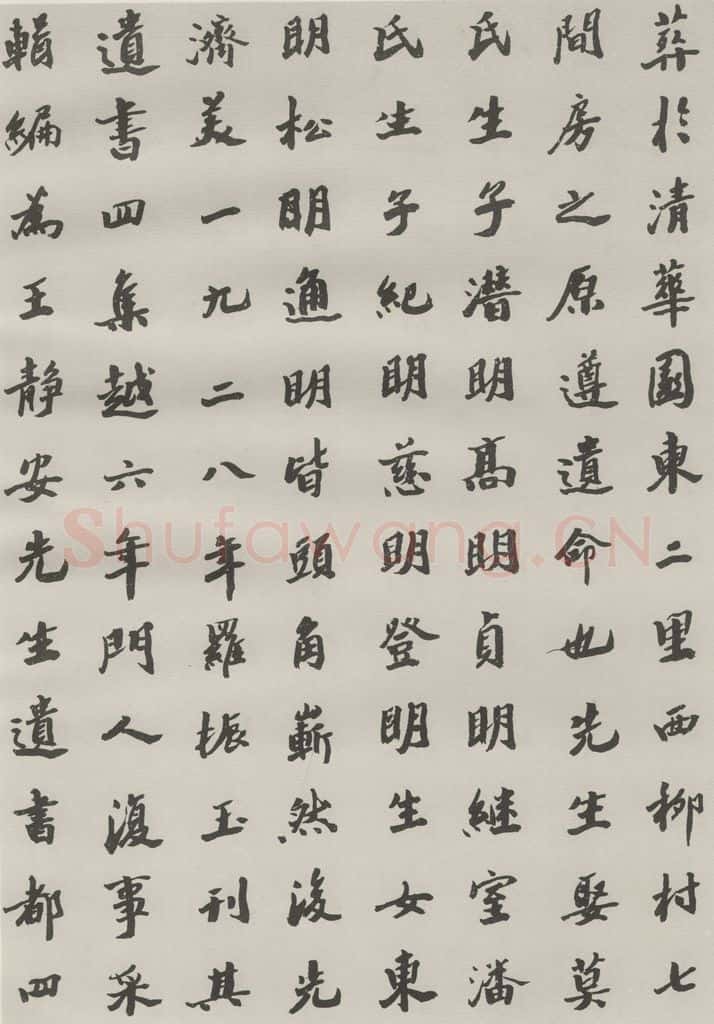 葬於清華園東二里西柳村七
間房之原遵遺命也先生娶莫
氏生子潛明高明貞明繼室潘
氏生子紀明慈明登明生女東
明松明通明皆頭角嶄然後先
濟美一九二八年羅振玉刊其
遺書四集越六年門人復事采
輯編為王靜安先生遺書都四
Shufawang.CN